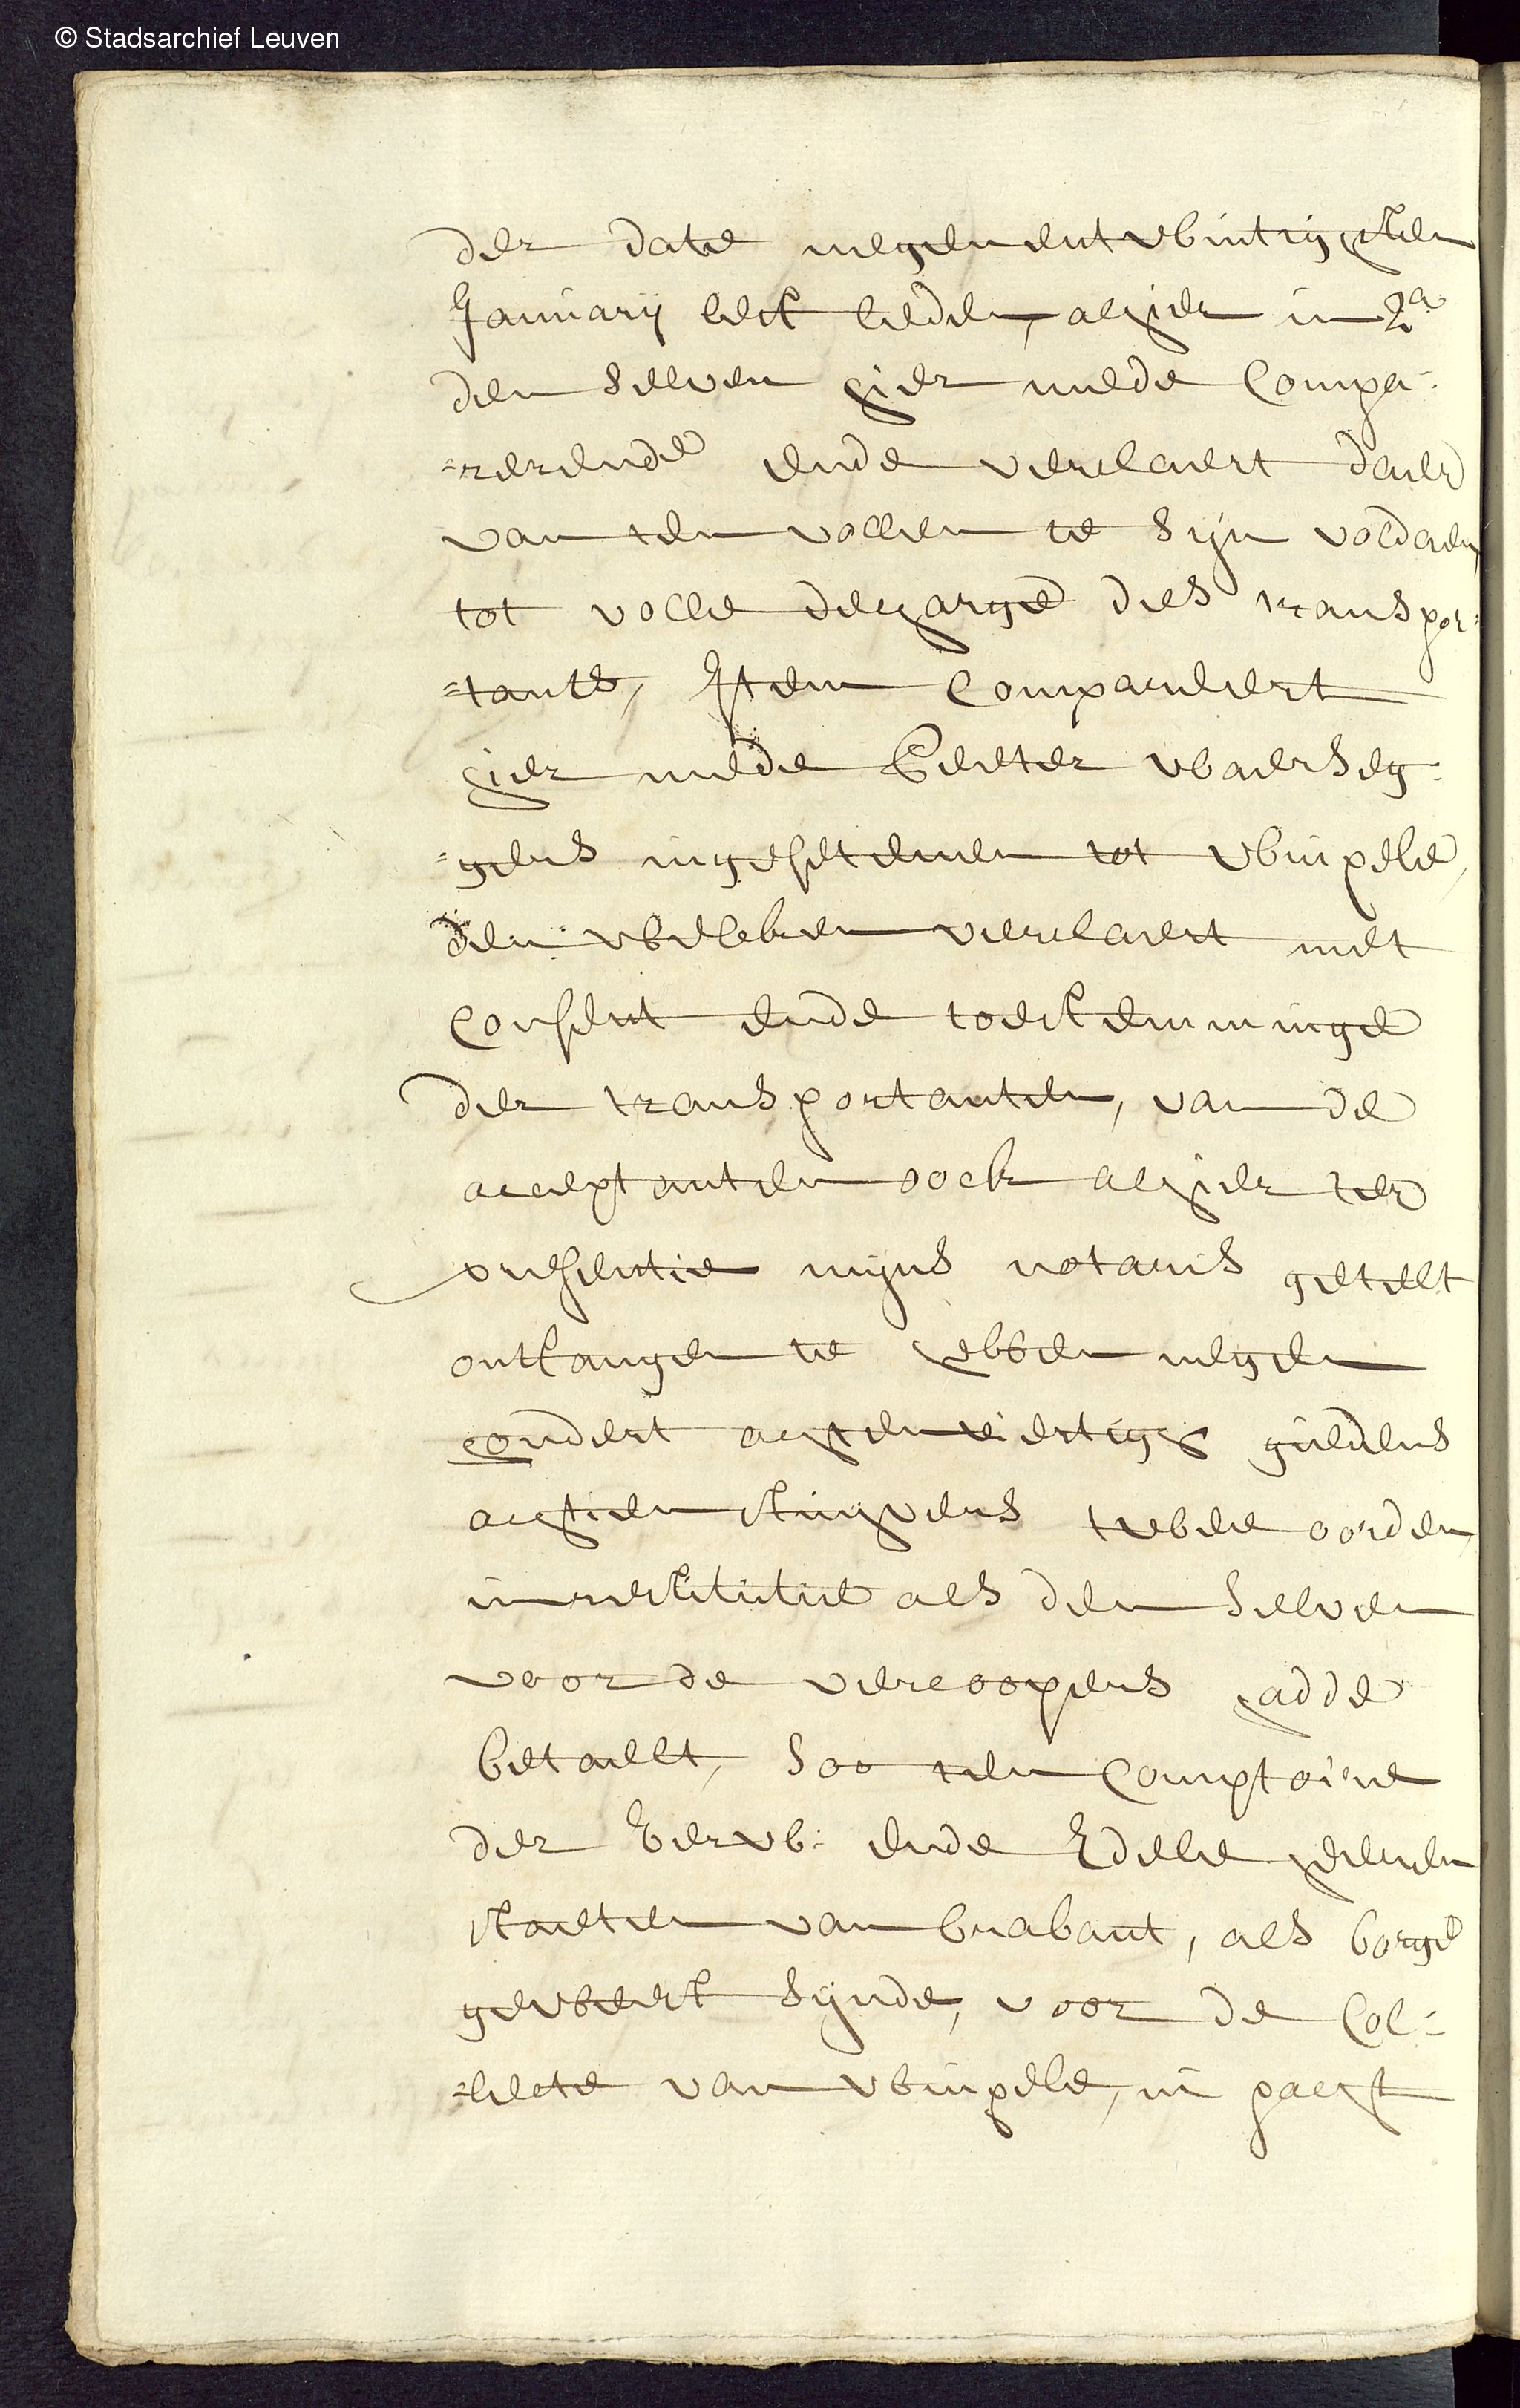 © Stadsarchief Leuven
der date negenentwintighsten
January lest leden, alhier in 2a
den selven hier mede Compa-
=rerende ende verclaert daer
van ten vollen te sijn voldaen
tot volle decharge des transpor=
=tants, Item compareert
hier mede Peeter Swaerseg-
=gers ingesetenen tot winxele,
den welcken verclaert met
Consent ende toestemminge
der transportanten, van de
acceptanten oock alhier ter
presentie mijns notaris getelt
ontfangen te hebben negen
hondert achtenveertigh guldens
achtien stuyvers twee oorden
in restitutie als den selven
voor de vercoopers hadde
betaelt, soo ten Comptoire
der Eerw: ende Edele heeren
staeten van brabant, als borge
geweest sijnde, voor de Col=
=lecte van winxele, in pacht